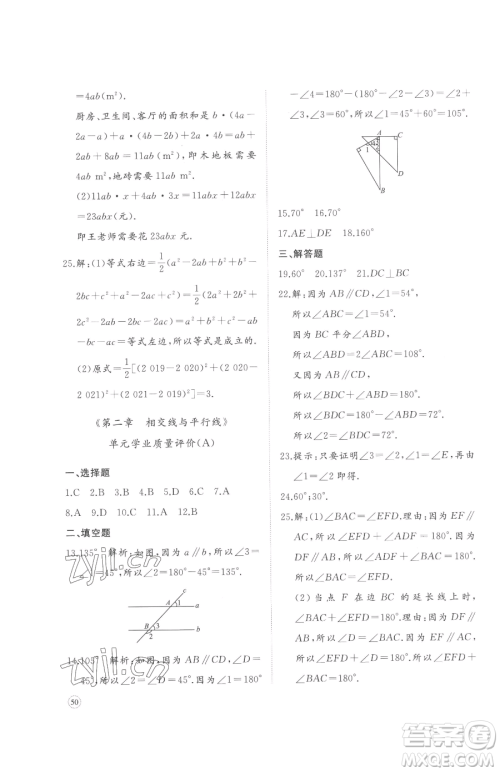 =4ab(m²).
厨房、卫生间、客厅的面积是 b·(4a-
2a-a)+a·(4b-2b)+2a·4b=ab+
2ab+8ab=11ab(m²),即木地板需要
4ab m²,地砖需要 11ab m².
(2)11ab·x+4ab·3x=11abx+12abx=
23abx(元).
即王老师需要花 23abx 元.
25.解:(1)等式右边=1/2(a²-2ab+b²+b²-
2bc+c²+a²-2ac+c²)=a²+b²+c²-
ab-bc-ac=等式左边,所以等式是成立的.
(2)原式=1/2[(2 019-2 020)²+(2 020-
2 021)²+(2 021-2 019)²]=3.
《第二章 相交线与平行线》
单元学业质量评价(A)
一、选择题
1.C 2.B 3.A 4.B 5.D 6.B 7.D
8.D 9.A 10.C 11.D 12.A
二、填空题
13.135° 解析:如图,因为a∥b,所以∠3=
∠1=45°,所以∠2=180°-45°=135°.
14.105° 解析:如图,因为AB∥CD,∠D=
45°,所以∠2=∠D=45°.因为∠2+∠3
50
-∠4=180°-∠2-∠3,∠2=45°,
∠3=60°,所以∠1=60°+45°=105°.
15.70° 16.70°
17.AE⊥DE 18.160°
三、解答题
19.60° 20.137° 21.DC⊥BC
22.解:因为AB∥CD,∠1=54°,
所以∠ABC=∠1=54°.
因为BC平分∠ABD,
所以∠ABD=2∠ABC=108°.
又因为AB∥CD,
所以∠BDC+∠ABD=180°.
所以∠BDC=180°-∠ABD=72°.
所以∠2=∠BDC=72°.
23.提示:只要证明∠1=∠ABD,∠ABD=
∠2=∠1即得.
24.60°;30°.
25.解:(1)∠BAC=∠EFD.因为EF∥
AC,所以∠BAC+∠AEF=180°.因为
DF∥AB,所以∠EFD+∠AEF=180°.
所以∠BAC=∠EFD.
(2)当点F在边BC的延长线上时,
∠BAC+∠EFD=180°.因为EF∥
AC,所以∠BAC=∠E.因为DF∥AB,
所以∠E+∠EFD=180°.所以∠BAC
+∠EFD=180°.